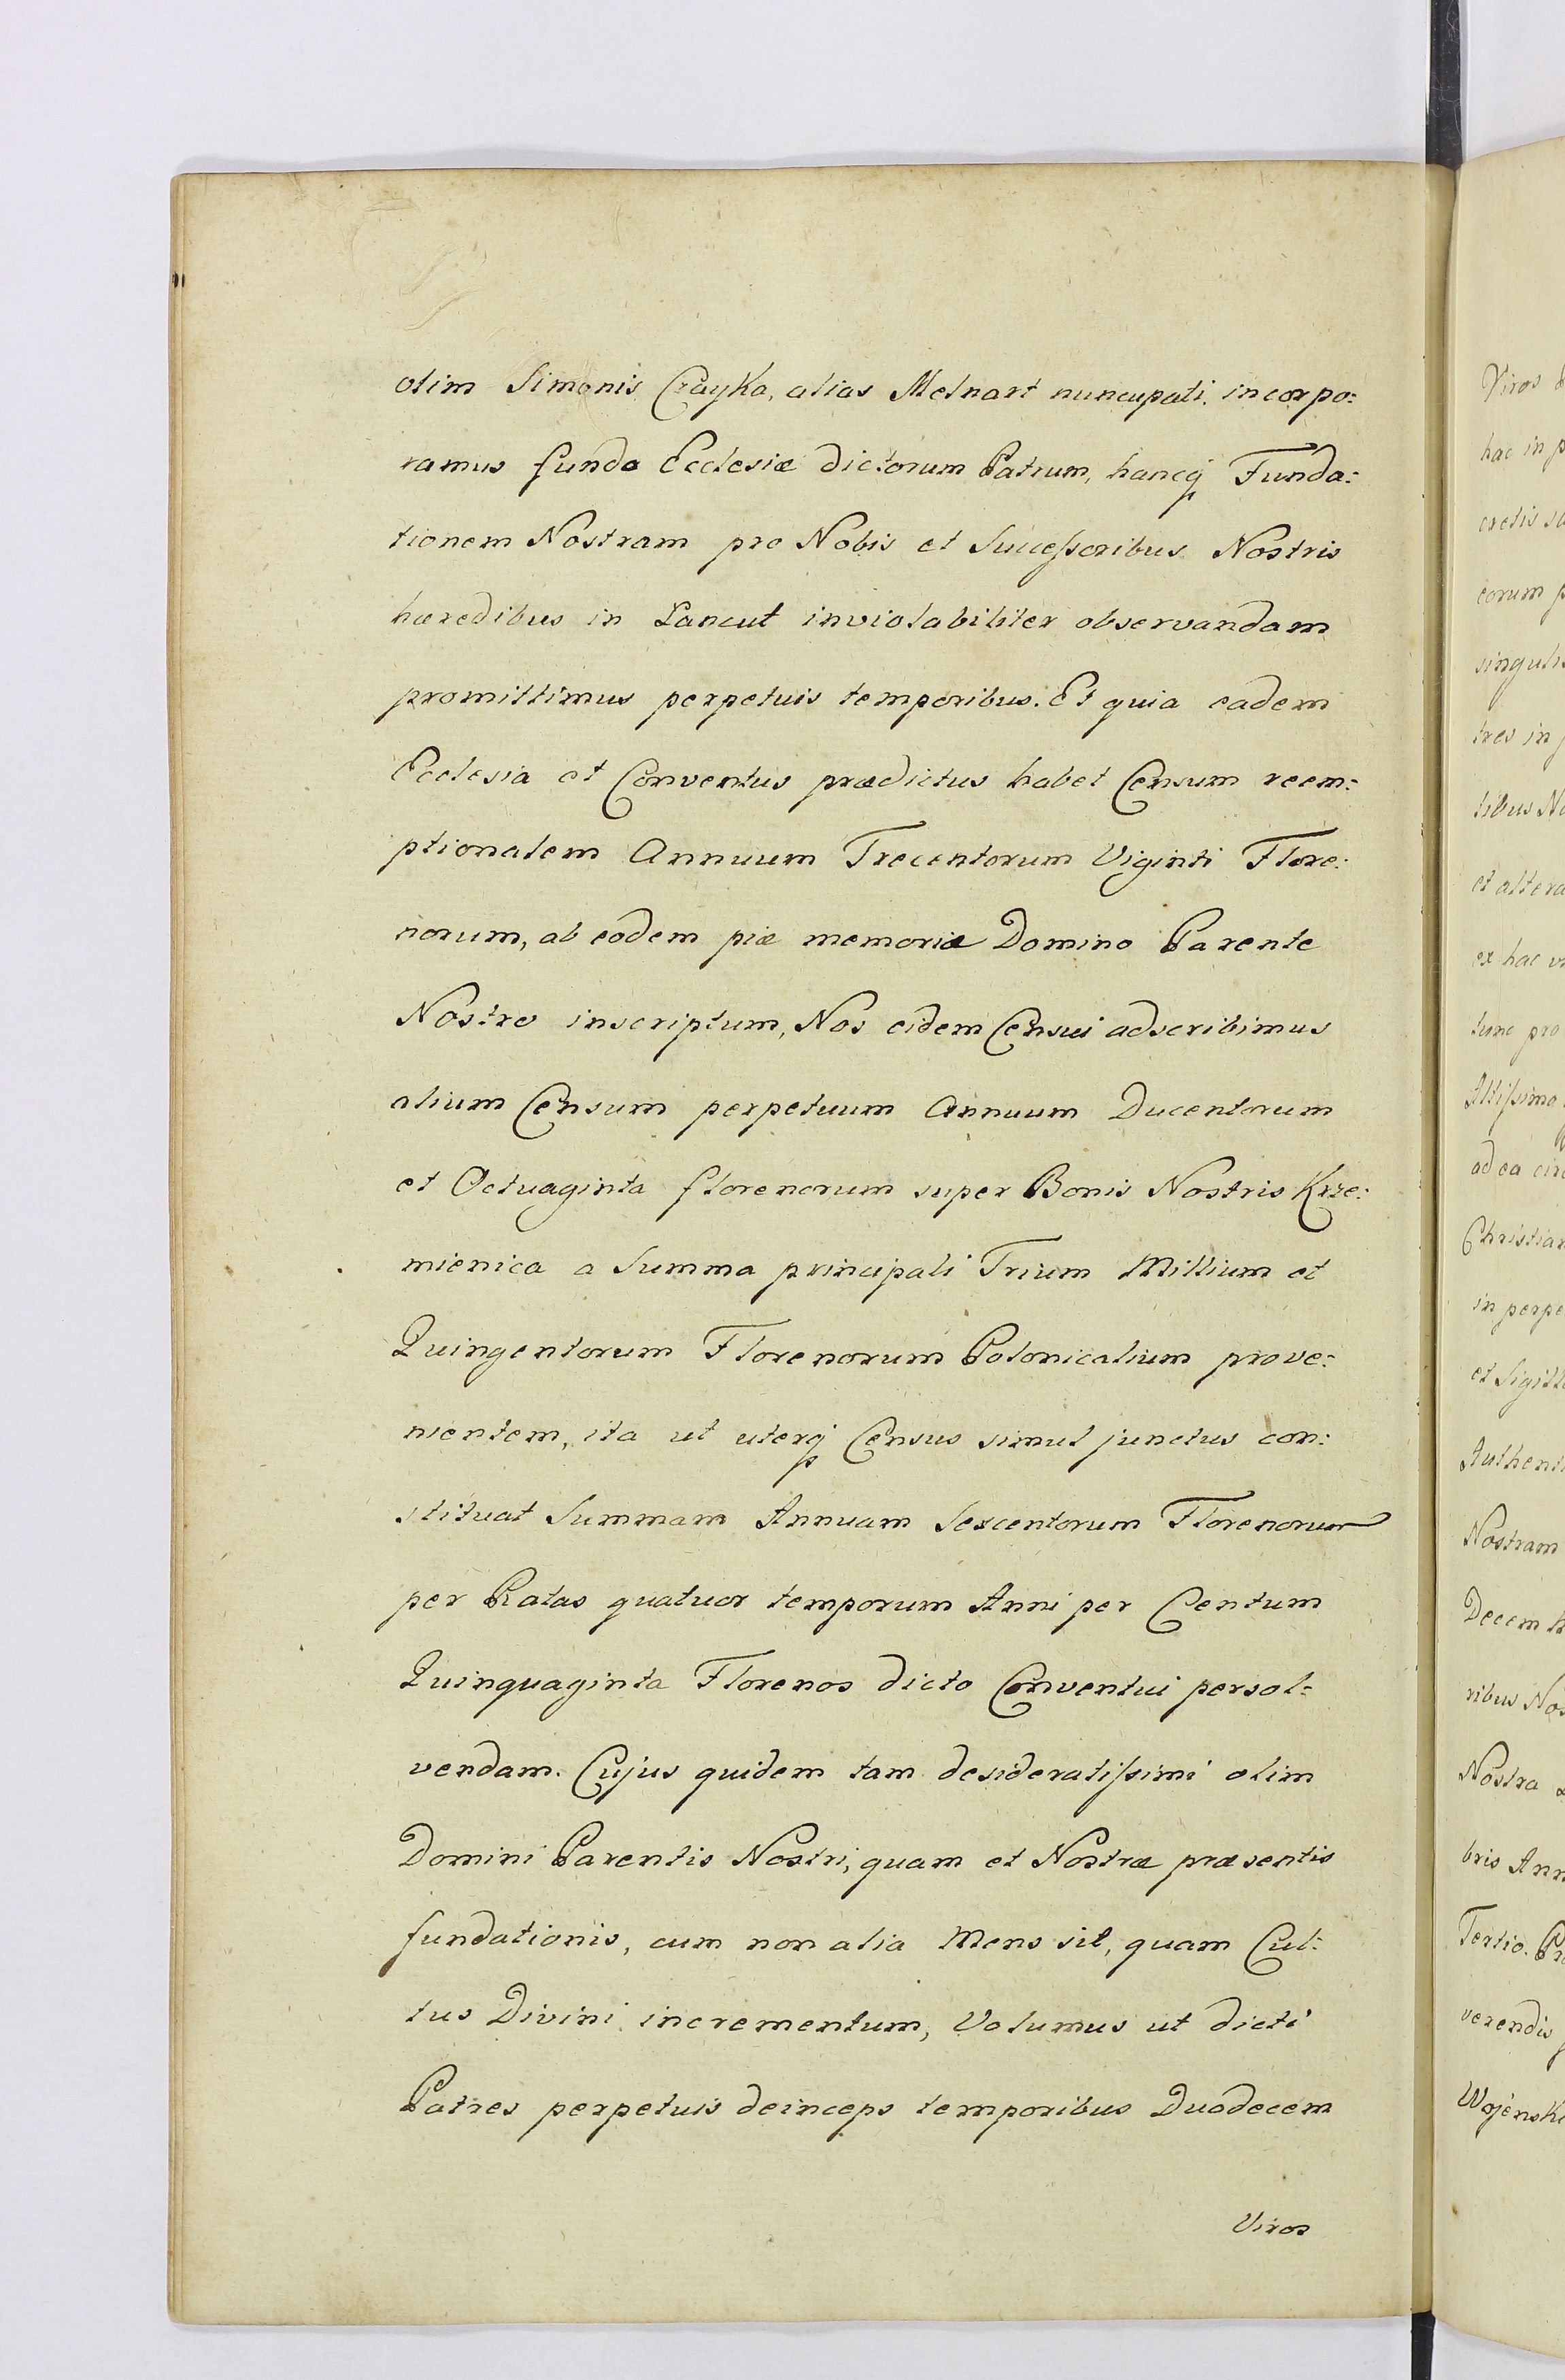 olim Simonis Czayka, alias Melnart nuncupati incorpo:
ramus fundo Ecclesiæ dictorum Patrum, hancq Funda:
tionem Nostram pro Nobis et Successoribus Nostris
hæredibus in Łancut inviolabiliter observandam
promittimus perpetuis temporibus. Et quia eadem
Ecclesia et Conventus prædictus habet Censum reem:
ptionalem Annuum Trecentorum Viginti Flore:
norum, ab eodem piæ memoriæ Domino Parente
Nostro inscriptum, Nos eidem Censui adscribimus
alium Censum perpetuum Annuum Ducentorum
et Octuaginta florenorum super Bonis Nostris Krze:
mienica a Summa principali Trium Millium et
Quingentorum Florenorum Polonicalium prove:
nientem, ita ut uterq Census simul junctus con:
stituat Summam Annuam Sexcentorum Florenorum
per Ratas quatuor temporum Anni per Centum
Quinquaginta Florenos dicto Conventui persol:
vendam. Cujus quidem tam desideratissimi olim
Domini Parentis Nostri, quam et Nostræ præsentis
fundationis, cum non alia Mens sit, quam Cul:
tus Divini incrementum, Volumus ut dicti
Patres perpetuis deinceps temporibus Duodecem
Viros
Viros
hac in
eorum
singulis
tres in
tibus
et altera
ex hac
tunc pro
Altissimo
ad ea
Christian
in perpe
et Sigill
Authent
Nostram
Decem
ribus Nos
Nostra
bris Ann
Tertio.
verendis
Wojensk